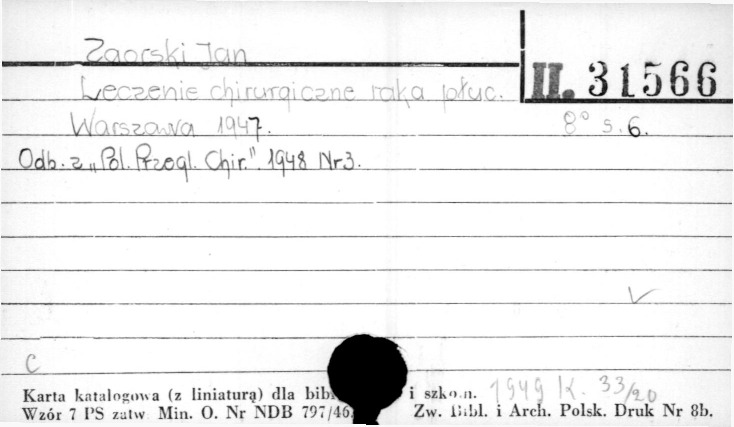 Zaorski Jan
II. 31566
Leczenie chirurgiczne raka płuc.
Warszawa 1947. 8° s. 6.
Odb. z „Pol. Przegl. Chir." 1948 Nr 3.
C
1949 K. 33/20
Karta katalogowa (z liniaturą) dla bibl i szkoln.
Wzór 7 PS zatw Min. O. Nr NDB 797/46 Zw. Bibl. i Arch. Polsk. Druk Nr 8b.